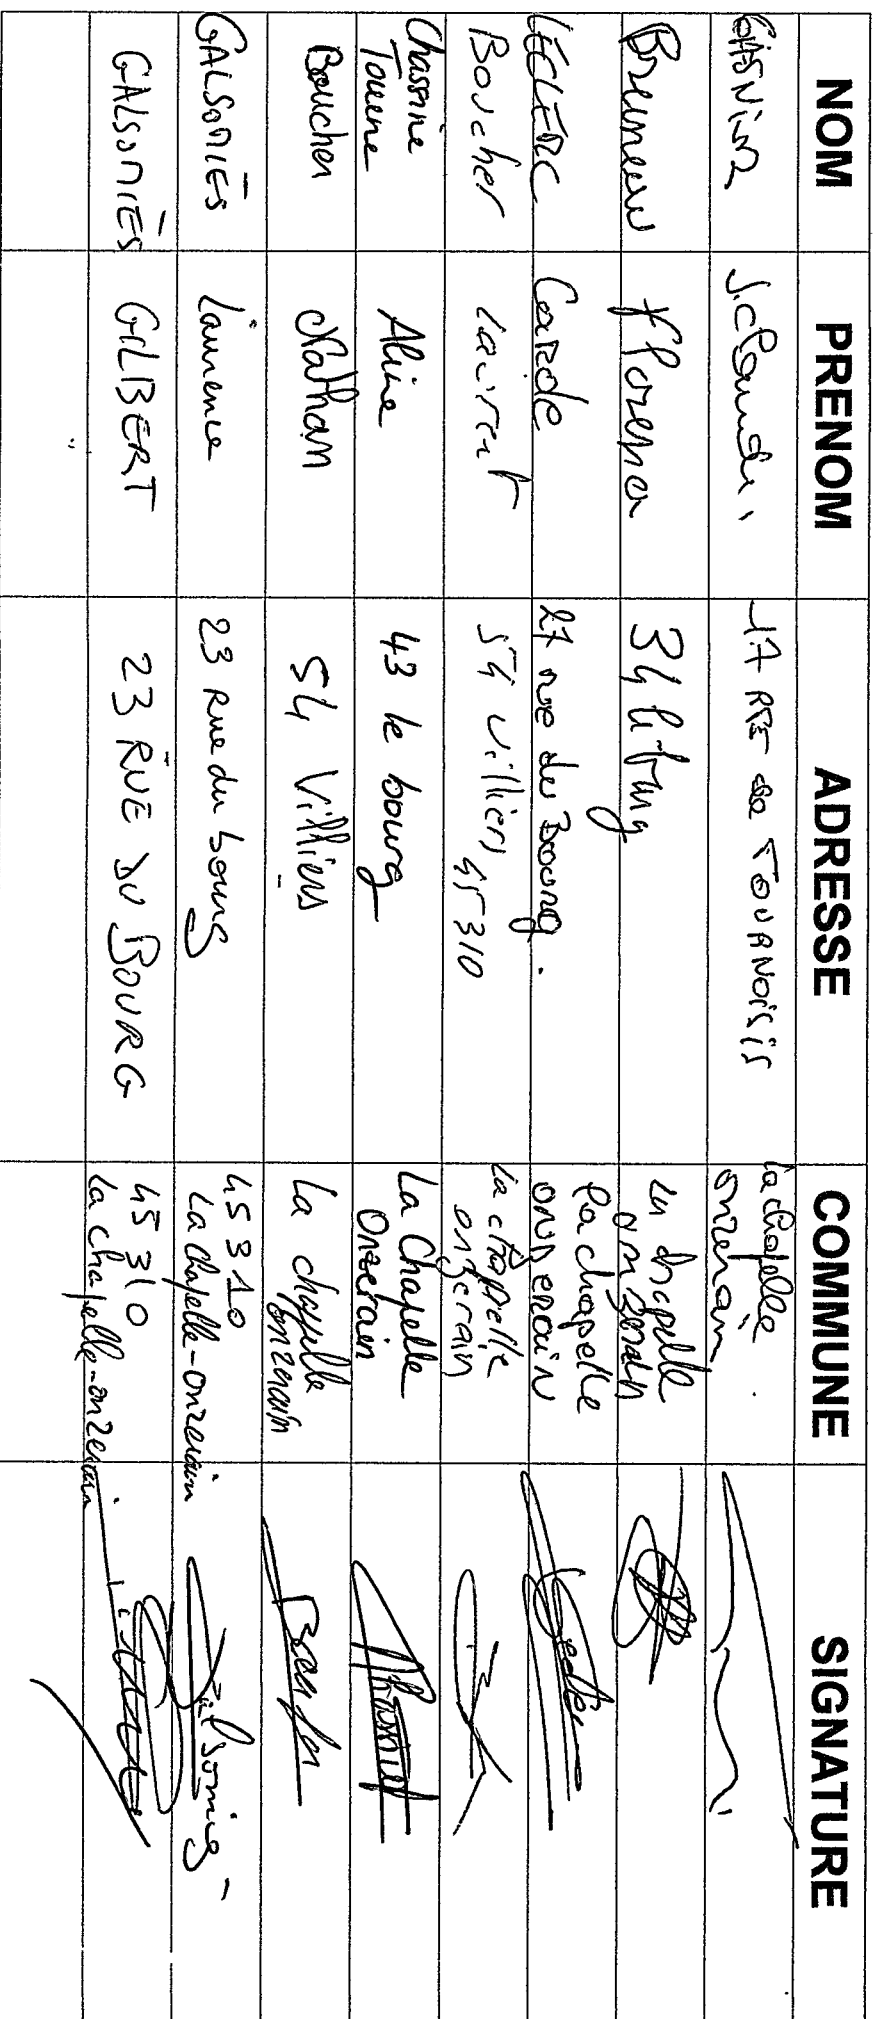 NOM PRENOM ADRESSE COMMUNE SIGNATURE
17 RTE de TOURNOISIS La chapelle onzerain
Bruneau florence 34 le bourg La chapelle onzerain
LECLERC Carole 27 rue du Bourg. La chapelle onzerain
Boucher Laurent 54 villiers 45310 La chapelle onzerain
Chassine Toune Aline 43 le bourg La Chapelle Onzerain
Boucher Nathan 54 Villiers La chapelle onzerain
GALSOMIES Laurence 23 Rue du bourg 45310 La chapelle-onzerain Galsomies
GALSOMIES GILBERT 23 RUE DU BOURG 45310 La chapelle-onzerain